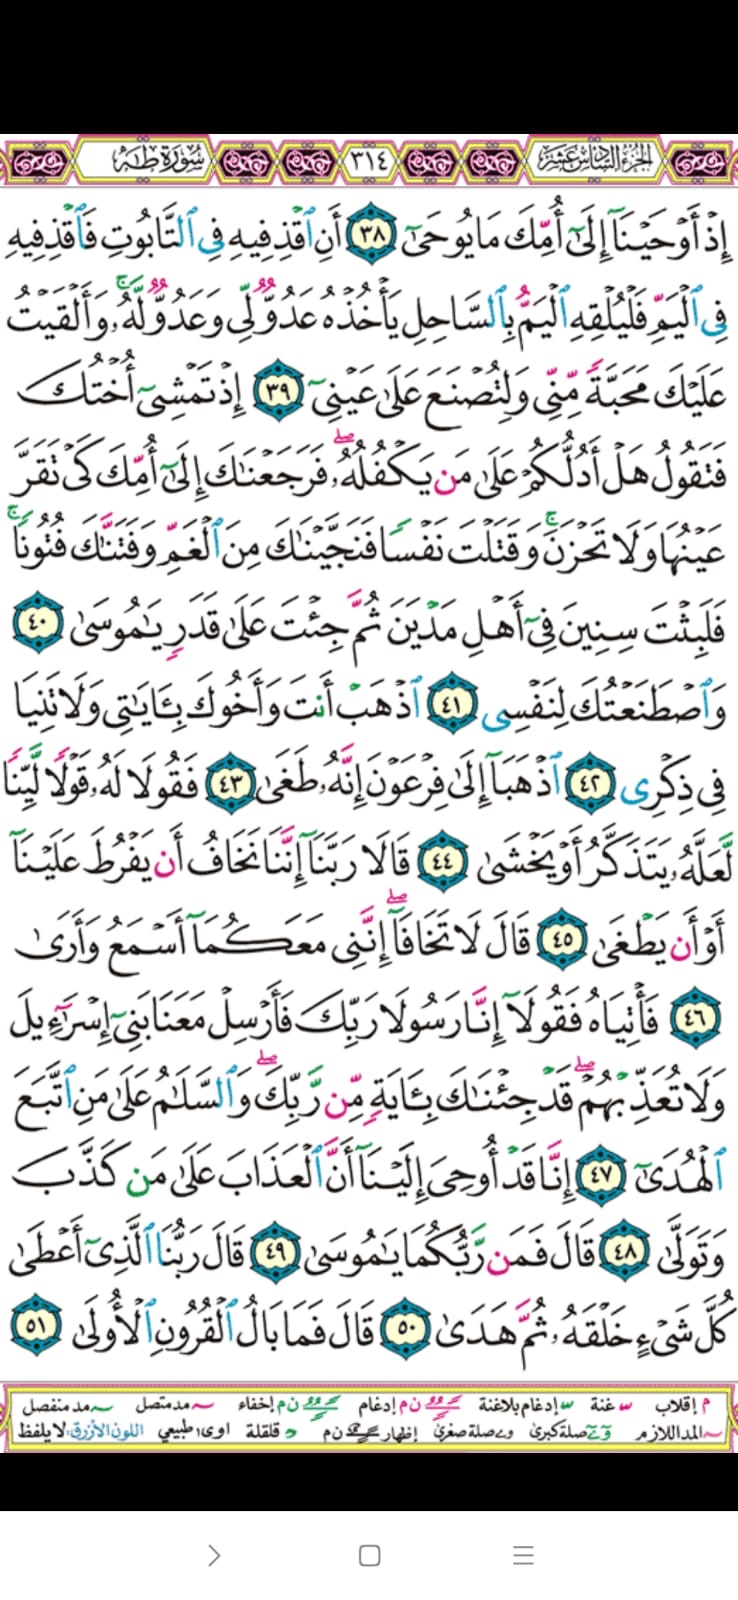 الجزء السادس عشر ٣١٤ سورة طه
إِذْ أَوْحَيْنَآ إِلَىٰٓ أُمِّكَ مَا يُوحَىٰٓ ٣٨ أَنِ ٱقْذِفِيهِ فِى ٱلتَّابُوتِ فَٱقْذِفِيهِ
فِى ٱلْيَمِّ فَلْيُلْقِهِ ٱلْيَمُّ بِٱلسَّاحِلِ يَأْخُذْهُ عَدُوٌّ لِّى وَعَدُوٌّ لَّهُۥ ۚ وَأَلْقَيْتُ
عَلَيْكَ مَحَبَّةً مِّنِّى وَلِتُصْنَعَ عَلَىٰ عَيْنِىٓ ٣٩ إِذْ تَمْشِىٓ أُخْتُكَ
فَتَقُولُ هَلْ أَدُلُّكُمْ عَلَىٰ مَن يَكْفُلُهُۥ ۖ فَرَجَعْنَـٰكَ إِلَىٰٓ أُمِّكَ كَىْ تَقَرَّ
عَيْنُهَا وَلَا تَحْزَنَ ۚ وَقَتَلْتَ نَفْسًا فَنَجَّيْنَـٰكَ مِنَ ٱلْغَمِّ وَفَتَنَّـٰكَ فُتُونًا ۚ
فَلَبِثْتَ سِنِينَ فِىٓ أَهْلِ مَدْيَنَ ثُمَّ جِئْتَ عَلَىٰ قَدَرٍ يَـٰمُوسَىٰ ٤٠
وَٱصْطَنَعْتُكَ لِنَفْسِى ٤١ ٱذْهَبْ أَنتَ وَأَخُوكَ بِـَٔايَـٰتِى وَلَا تَنِيَا
فِى ذِكْرِى ٤٢ ٱذْهَبَآ إِلَىٰ فِرْعَوْنَ إِنَّهُۥ طَغَىٰ ٤٣ فَقُولَا لَهُۥ قَوْلًا لَّيِّنًا
لَّعَلَّهُۥ يَتَذَكَّرُ أَوْ يَخْشَىٰ ٤٤ قَالَا رَبَّنَآ إِنَّنَا نَخَافُ أَن يَفْرُطَ عَلَيْنَآ
أَوْ أَن يَطْغَىٰ ٤٥ قَالَ لَا تَخَافَآ ۖ إِنَّنِى مَعَكُمَآ أَسْمَعُ وَأَرَىٰ
٤٦ فَأْتِيَاهُ فَقُولَآ إِنَّا رَسُولَا رَبِّكَ فَأَرْسِلْ مَعَنَا بَنِىٓ إِسْرَٰٓءِيلَ
وَلَا تُعَذِّبْهُمْ ۖ قَدْ جِئْنَـٰكَ بِـَٔايَةٍ مِّن رَّبِّكَ ۖ وَٱلسَّلَـٰمُ عَلَىٰ مَنِ ٱتَّبَعَ
ٱلْهُدَىٰٓ ٤٧ إِنَّا قَدْ أُوحِىَ إِلَيْنَآ أَنَّ ٱلْعَذَابَ عَلَىٰ مَن كَذَّبَ
وَتَوَلَّىٰ ٤٨ قَالَ فَمَن رَّبُّكُمَا يَـٰمُوسَىٰ ٤٩ قَالَ رَبُّنَا ٱلَّذِىٓ أَعْطَىٰ
كُلَّ شَىْءٍ خَلْقَهُۥ ثُمَّ هَدَىٰ ٥٠ قَالَ فَمَا بَالُ ٱلْقُرُونِ ٱلْأُولَىٰ ٥١
م إقلاب غنة إدغام بلاغنة ن م إدغام ن م إخفاء مد متصل مد منفصل
المد اللازم صلة كبرى و ے صلة صغرى إظهار ن م قلقلة اوى، طبيعي اللون الأزرق، لا يلفظ